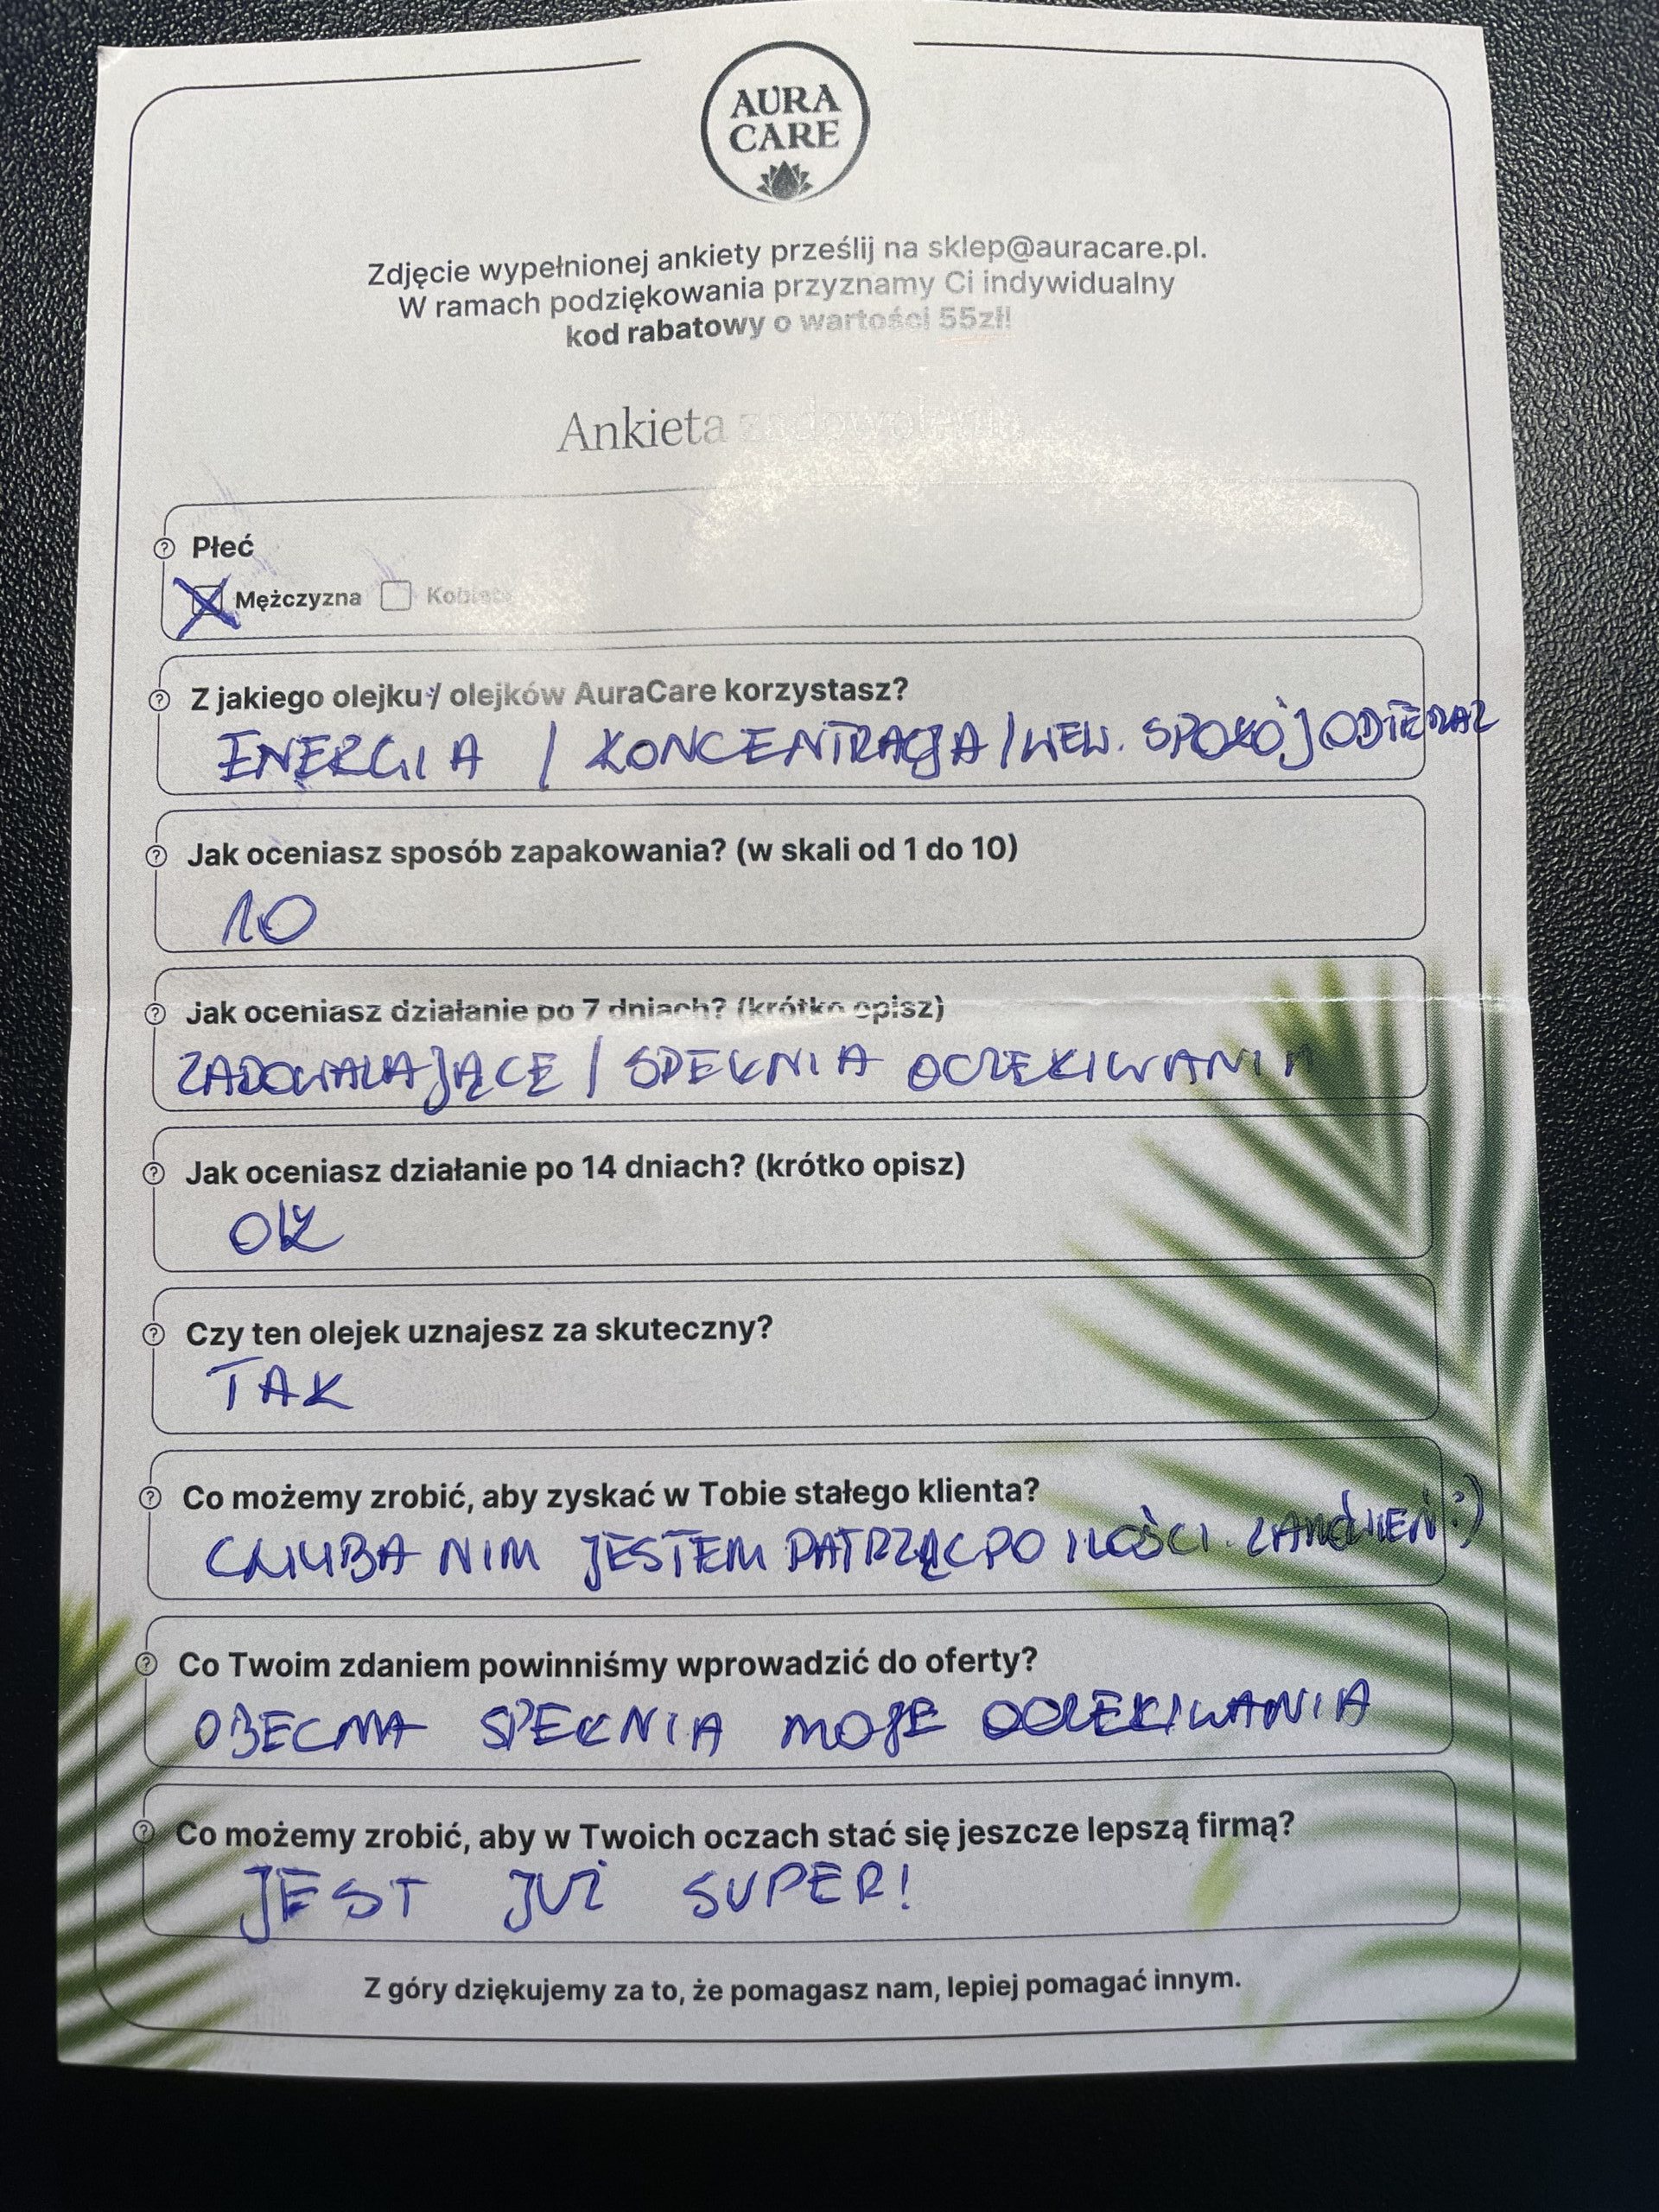 AURA
CARE
Zdjęcie wypełnionej ankiety prześlij na sklep@auracare.pl.
W ramach podziękowania przyznamy Ci indywidualny
kod rabatowy o wartości 55zł!
Ankieta zadowolenia
Płeć
Mężczyzna Kobieta
Z jakiego olejku / olejków AuraCare korzystasz?
ENERGIA / KONCENTRACJA / WEW. SPOKÓJ
Jak oceniasz sposób zapakowania? (w skali od 1 do 10)
10
Jak oceniasz działanie po 7 dniach? (krótko opisz)
ZADOWALAJĄCE / SPEŁNIA OCZEKIWANIA
Jak oceniasz działanie po 14 dniach? (krótko opisz)
OK
Czy ten olejek uznajesz za skuteczny?
TAK
Co możemy zrobić, aby zyskać w Tobie stałego klienta?
CHYBA NIM JESTEM PATRZĄC PO ILOŚCI ZAMÓWIEŃ :)
Co Twoim zdaniem powinniśmy wprowadzić do oferty?
OBECNA SPEŁNIA MOJE OCZEKIWANIA
Co możemy zrobić, aby w Twoich oczach stać się jeszcze lepszą firmą?
JEST JUŻ SUPER!
Z góry dziękujemy za to, że pomagasz nam, lepiej pomagać innym.